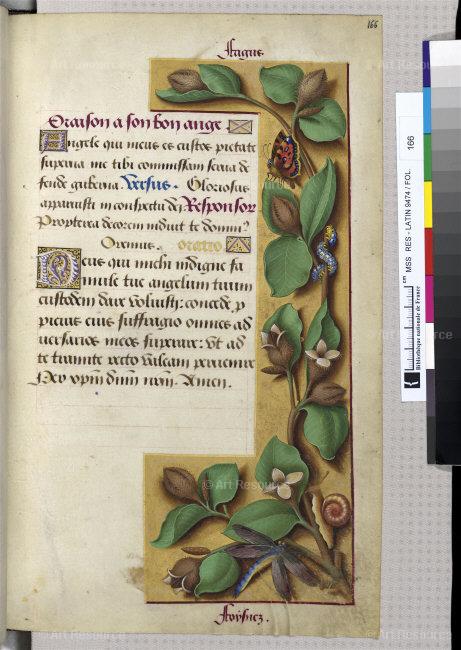 166
Fagus
Oraison a son bon ange
Angele qui meus es custos pietate
superna me tibi commissam serua de
fende guberna. Versus. Gloriosus
apparuisti in conspectu dei Responsor
Propterea decorem induit te domin⁹
Oremus. oratio
Deus qui michi indigne fa
mule tue angelum tuum
custodem dare voluisti: concede, ꝓ
picius eius suffragio omnes ad
uersarios meos superare: vt ad
te tramite recto valeam peruenire
Per xp̄m dn̄m nr̄m. Amen.
Foysnez.
MSS RES - LATIN 9474 / FOL. 166
cm
Bibliothèque nationale de France
© Art Resource